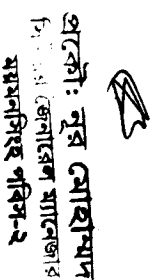 প্রকৌ: নূর মোহাম্মদ
জেনারেল ম্যানেজার
ময়মনসিংহ পবিস-২